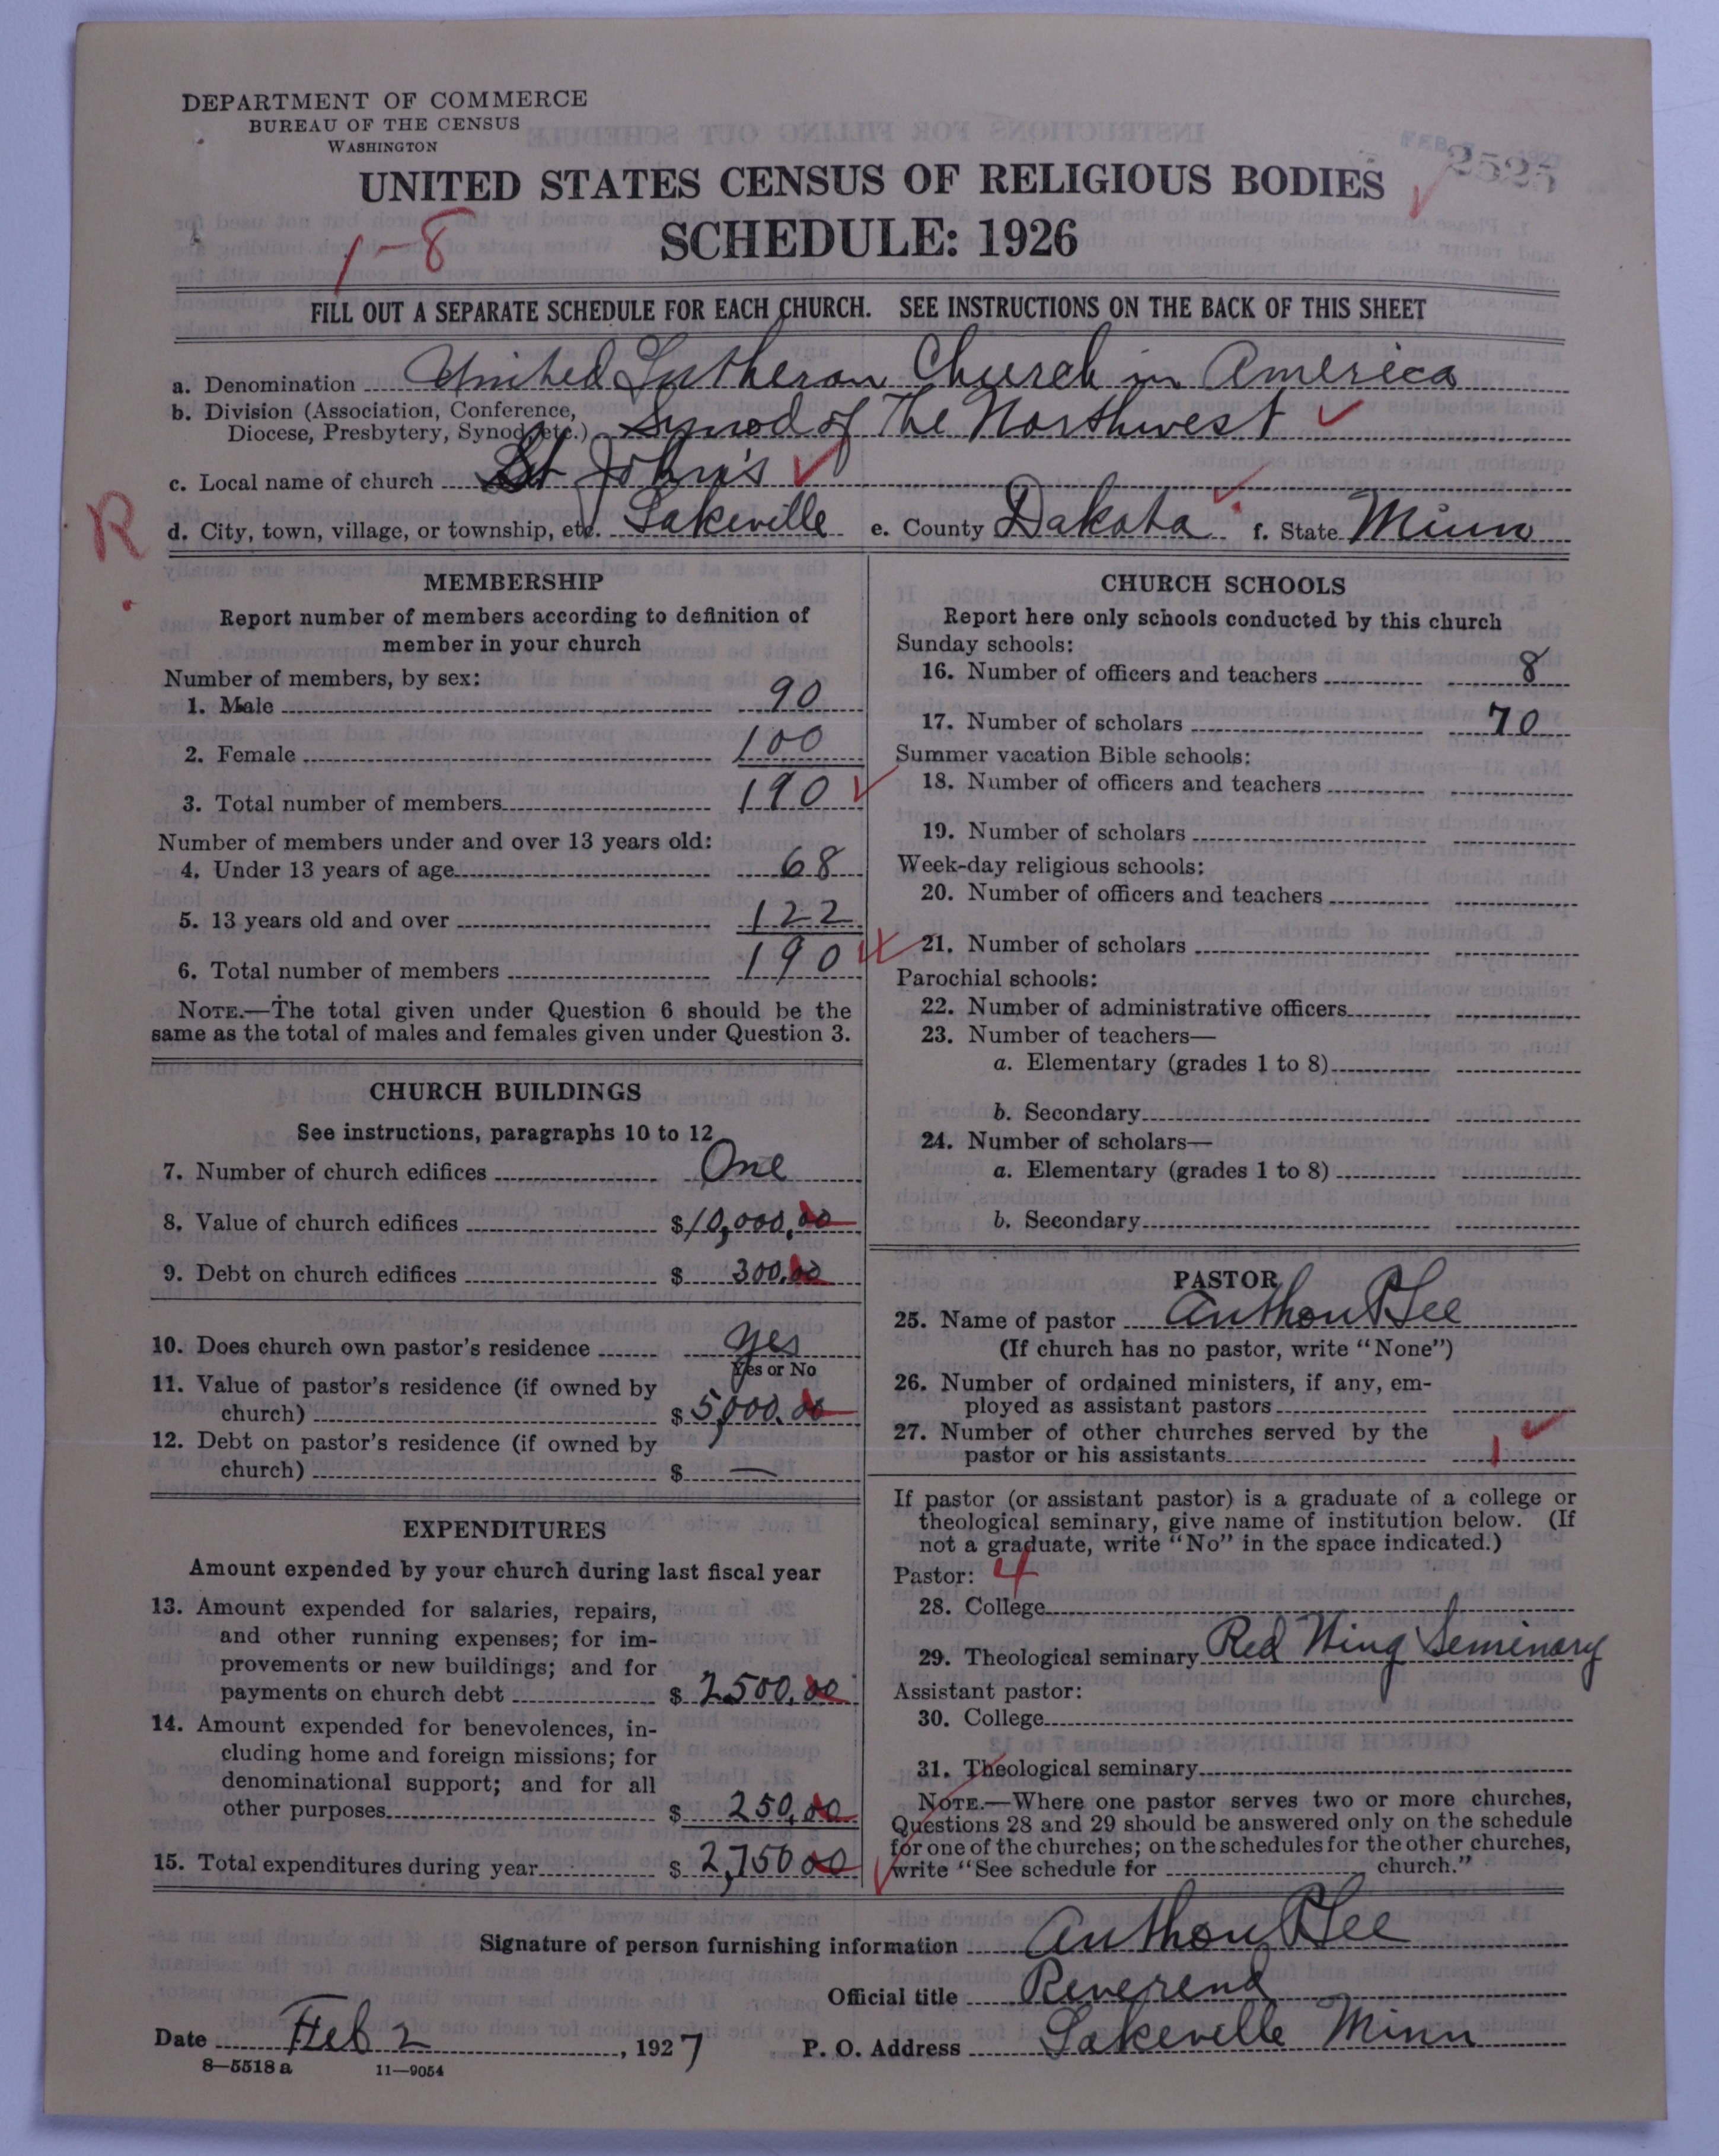 DEPARTMENT OF COMMERCE
BUREAU OF THE CENSUS
WASHINGTON
2525
UNITED STATES CENSUS OF RELIGIOUS BODIES
SCHEDULE: 1926
1-8
FILL OUT A SEPARATE SCHEDULE FOR EACH CHURCH. SEE INSTRUCTIONS ON THE BACK OF THIS SHEET
a. Denomination United Lutheran Church in America
b. Division (Association, Conference,
Diocese, Presbytery, Synod, etc.) Synod of The Northwest
c. Local name of church St John's
R
d. City, town, village, or township, etc. Lakeville e. County Dakota f. State Minn
MEMBERSHIP
Report number of members according to definition of
member in your church
Number of members, by sex:
1. Male 90
2. Female 100
3. Total number of members 190
Number of members under and over 13 years old:
4. Under 13 years of age 68
5. 13 years old and over 122
6. Total number of members 190
NOTE.—The total given under Question 6 should be the
same as the total of males and females given under Question 3.
CHURCH BUILDINGS
See instructions, paragraphs 10 to 12
7. Number of church edifices One
8. Value of church edifices $10,000.00
9. Debt on church edifices $ 300.00
10. Does church own pastor's residence yes
Yes or No
11. Value of pastor's residence (if owned by
church) $5,000.00
12. Debt on pastor's residence (if owned by
church) $ —
EXPENDITURES
Amount expended by your church during last fiscal year
13. Amount expended for salaries, repairs,
and other running expenses; for im-
provements or new buildings; and for
payments on church debt $ 2500.00
14. Amount expended for benevolences, in-
cluding home and foreign missions; for
denominational support; and for all
other purposes $ 250.00
15. Total expenditures during year $ 2,750 00
CHURCH SCHOOLS
Report here only schools conducted by this church
Sunday schools:
16. Number of officers and teachers 8
17. Number of scholars 70
Summer vacation Bible schools:
18. Number of officers and teachers
19. Number of scholars
Week-day religious schools:
20. Number of officers and teachers
21. Number of scholars
Parochial schools:
22. Number of administrative officers
23. Number of teachers—
a. Elementary (grades 1 to 8)
b. Secondary
24. Number of scholars—
a. Elementary (grades 1 to 8)
b. Secondary
PASTOR
25. Name of pastor Anthon P Lee
(If church has no pastor, write "None")
26. Number of ordained ministers, if any, em-
ployed as assistant pastors
27. Number of other churches served by the
pastor or his assistants 1
If pastor (or assistant pastor) is a graduate of a college or
theological seminary, give name of institution below. (If
not a graduate, write "No" in the space indicated.)
Pastor: 4
28. College
29. Theological seminary Red Wing Seminary
Assistant pastor:
30. College
31. Theological seminary
NOTE.—Where one pastor serves two or more churches,
Questions 28 and 29 should be answered only on the schedule
for one of the churches; on the schedules for the other churches,
write "See schedule for church."
Signature of person furnishing information Anthon P Lee
Official title Reverend
Date Feb 2, 1927 P. O. Address Lakeville Minn
8—5518 a 11—9054